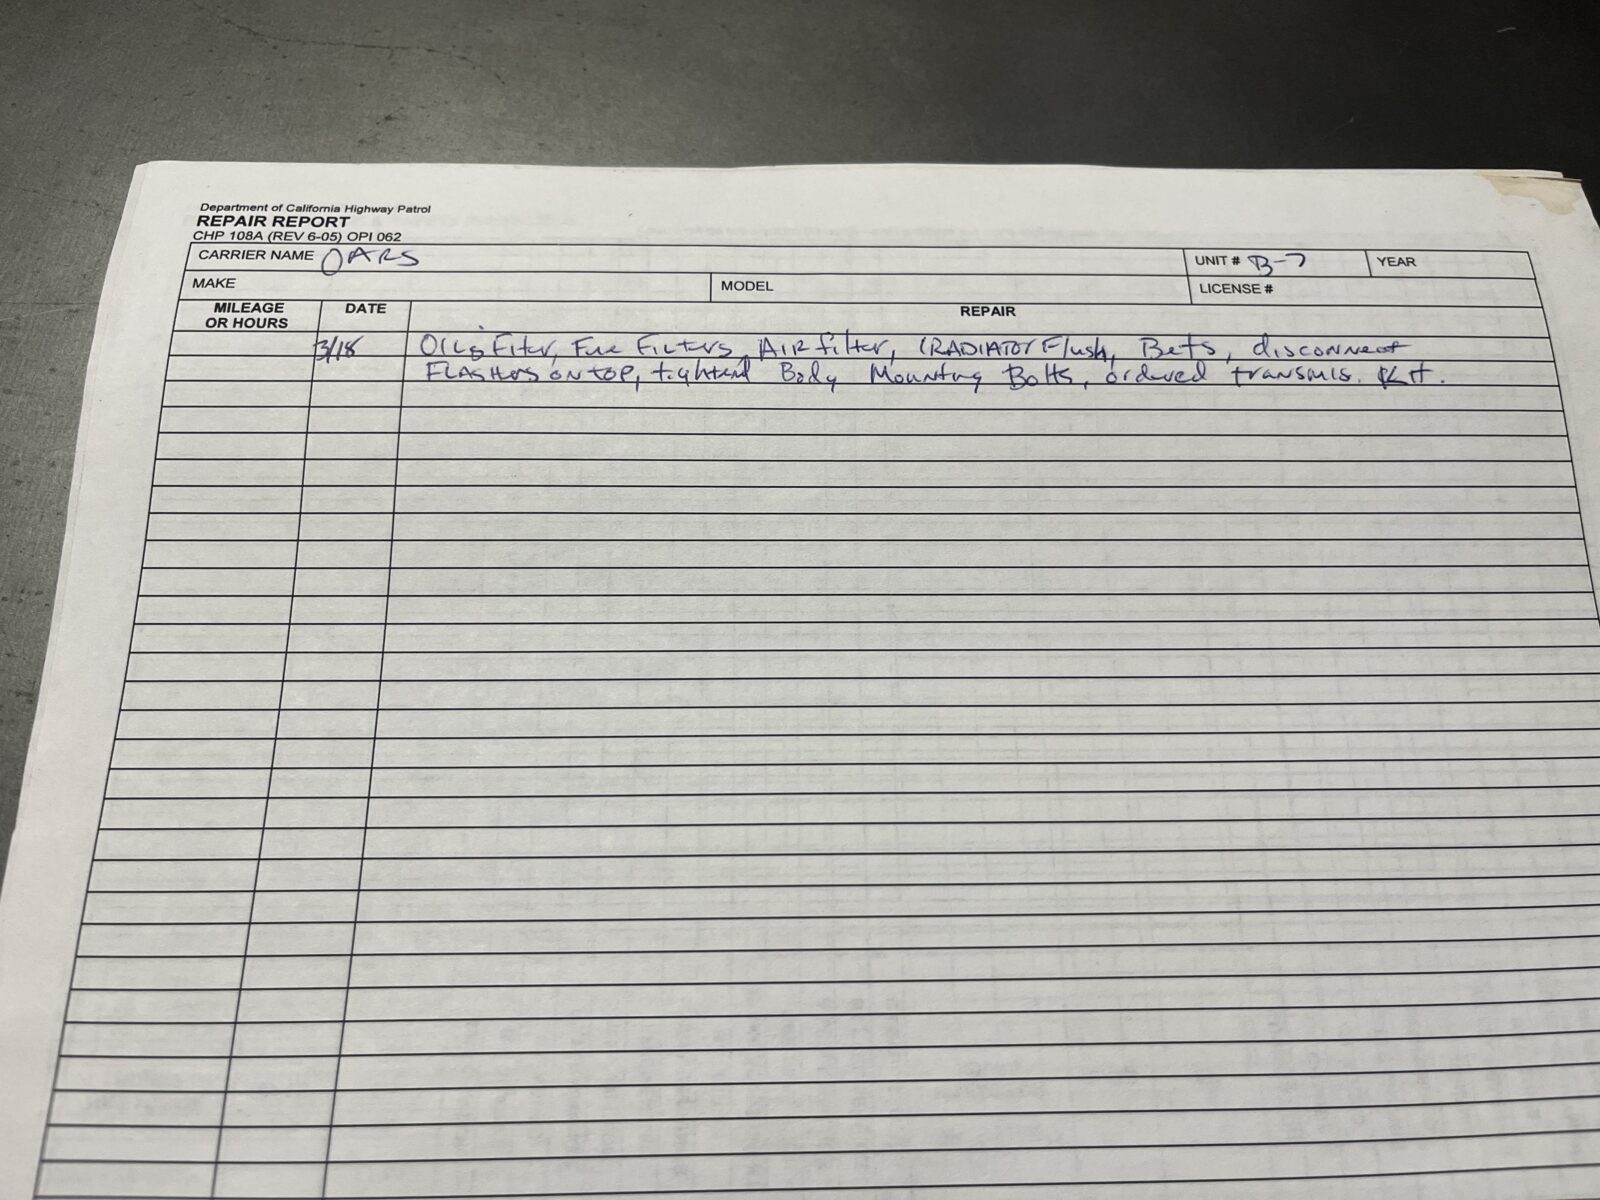 Department of California Highway Patrol
REPAIR REPORT
CHP 108A (REV 6-05) OPI 062
CARRIER NAME OARS UNIT # B-7 YEAR
MAKE MODEL LICENSE #
MILEAGE OR HOURS DATE REPAIR
3/18 OIL & Filter, Fue Filters, AIR filter, RADIATOR Flush, Belts, disconnect
FLASHERS ON TOP, tightend Body Mounting Bolts, ordered transmis. Kit.